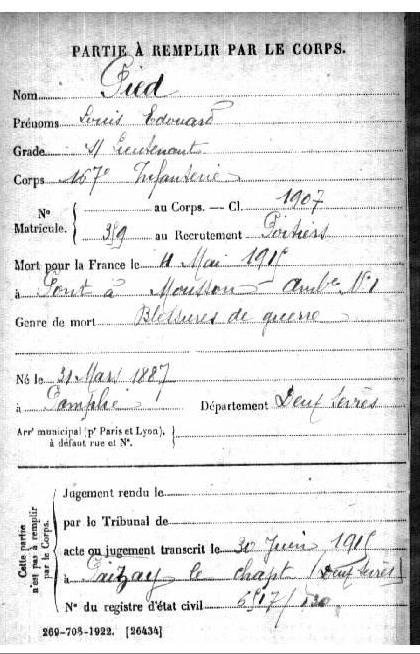 PARTIE À REMPLIR PAR LE CORPS.
Nom Pied
Prénoms Louis Edouard
Grade S/ Lieutenant
Corps 167e Infanterie
N° Matricule. { au Corps. — Cl. 1907
389 au Recrutement Poitiers
Mort pour la France le 4 Mai 1915
à Pont à Mousson - Ambce N°1
Genre de mort Blessures de guerre
Né le 31 Mars 1887
à Département Deux Sèvres
Arrt municipal (pr Paris et Lyon), à défaut rue et N°.
Cette partie n'est pas à remplir par le Corps.
Jugement rendu le
par le Tribunal de
acte ou jugement transcrit le 30 Juin 1915
à Paizay le chapt (Deux Sèvres)
N° du registre d'état civil
269-708-1922. [26434]